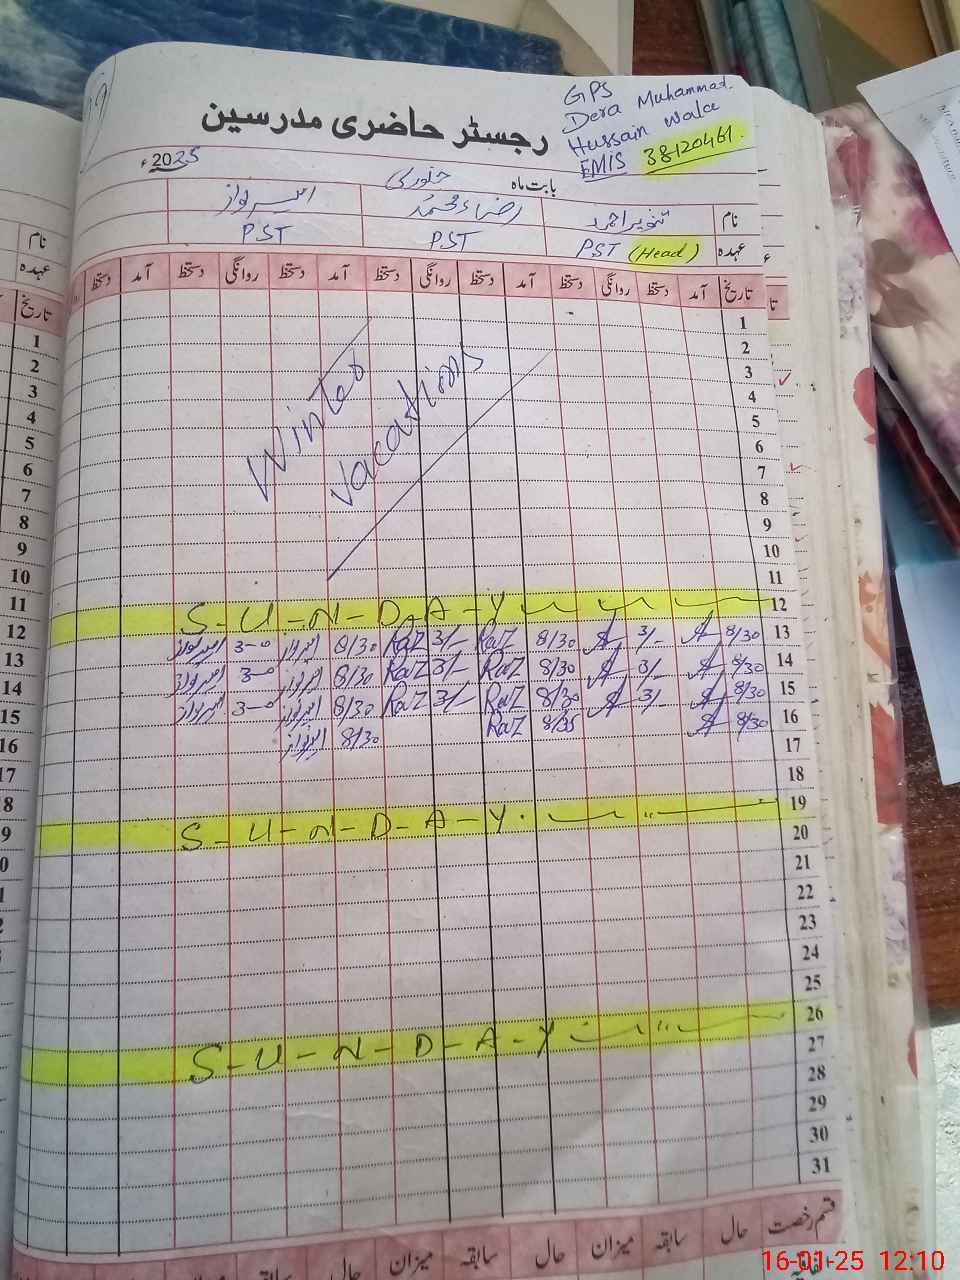 رجسٹر حاضری مدرسین
GPS
Dera Muhammad
Hussain wala
EMIS 38120461.
2025ء
بابت ماہ جنوری
نام تنویر احمد رضاء محمد امیر نواز
عہدہ PST (Head) PST PST
تاریخ آمد دستخط روانگی دستخط آمد دستخط روانگی دستخط آمد دستخط روانگی دستخط آمد دستخط
1
2
3
4
5
6
7
8
9
10
11
Winter
Vacations
12 S-U-N-D-A-Y
13 8/30 3/- 8/30 RaZ 3/- RaZ 8/30 امیر نواز 3-0 امیر نواز
14 8/30 3/- 8/30 RaZ 3/- RaZ 8/30 امیر نواز 3-0 امیر نواز
15 8/30 3/- 8/30 RaZ 3/- RaZ 8/30 امیر نواز 3-0 امیر نواز
16 8/30 8/35 RaZ 8/30 امیر نواز
17
18
19 S-U-N-D-A-Y
20
21
22
23
24
25
26 S-U-N-D-A-Y
27
28
29
30
31
قسم رخصت حال سابقہ میزان حال سابقہ میزان حال سابقہ میزان
نام
عہدہ
تاریخ
1
2
3
4
5
6
7
8
9
10
11
12
13
14
15
16
17
16-01-25 12:10